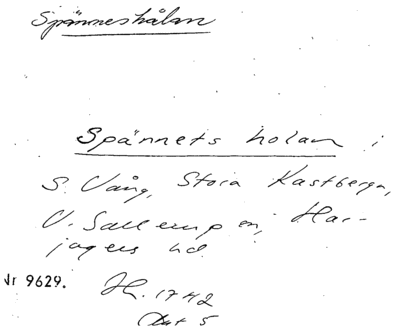 Spänneshålan
Spännets holan i
S. Vång, Stora Kastberga,
V. Sallerup sn, Har-
jagers hd.
Nr 9629.
1742
5